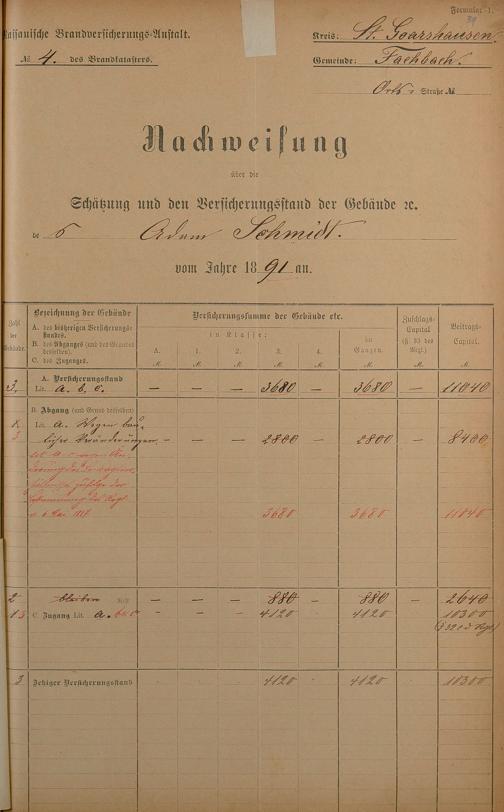 Formular I.
39
Nassauische Brandversicherungs-Anstalt.
Kreis: St. Goarshausen
№ 4. des Brandkatasters.
Gemeinde: Fachbach.
Orts Straße №
Nachweisung
über die
Schätzung und den Versicherungsstand der Gebäude ꝛc.
de s Adam Schmidt.
vom Jahre 1891 an.
Zahl der Gebäude.
Bezeichnung der Gebäude
A. des bisherigen Versicherungsstandes.
B. des Abganges (und des Grundes desselben)
C. des Zuganges.
Versicherungssumme der Gebäude etc.
in Klasse:
A. 1. 2. 3. 4.
im Ganzen.
Zuschlags-Capital (§ 33 des Regl.)
Beitrags-Capital.
M. M. M. M. M. M. M. M.
A. Versicherungsstand
3. Lit. a. b. c. — — — 3680 — 3680 — 11040
B. Abgang (und Grund desselben)
1. Lit. a. Wegen bau-
3 licher Veränderungen — — — 2800 — 2800 — 8400
3680 3680 11040
2 bleiben — — — 880 — 880 — 2640
1 3 C. Zugang Lit. a. b u c - - - 4120 - 4120 - 10300
3 Jetziger Versicherungsstand 4120 4120 10300